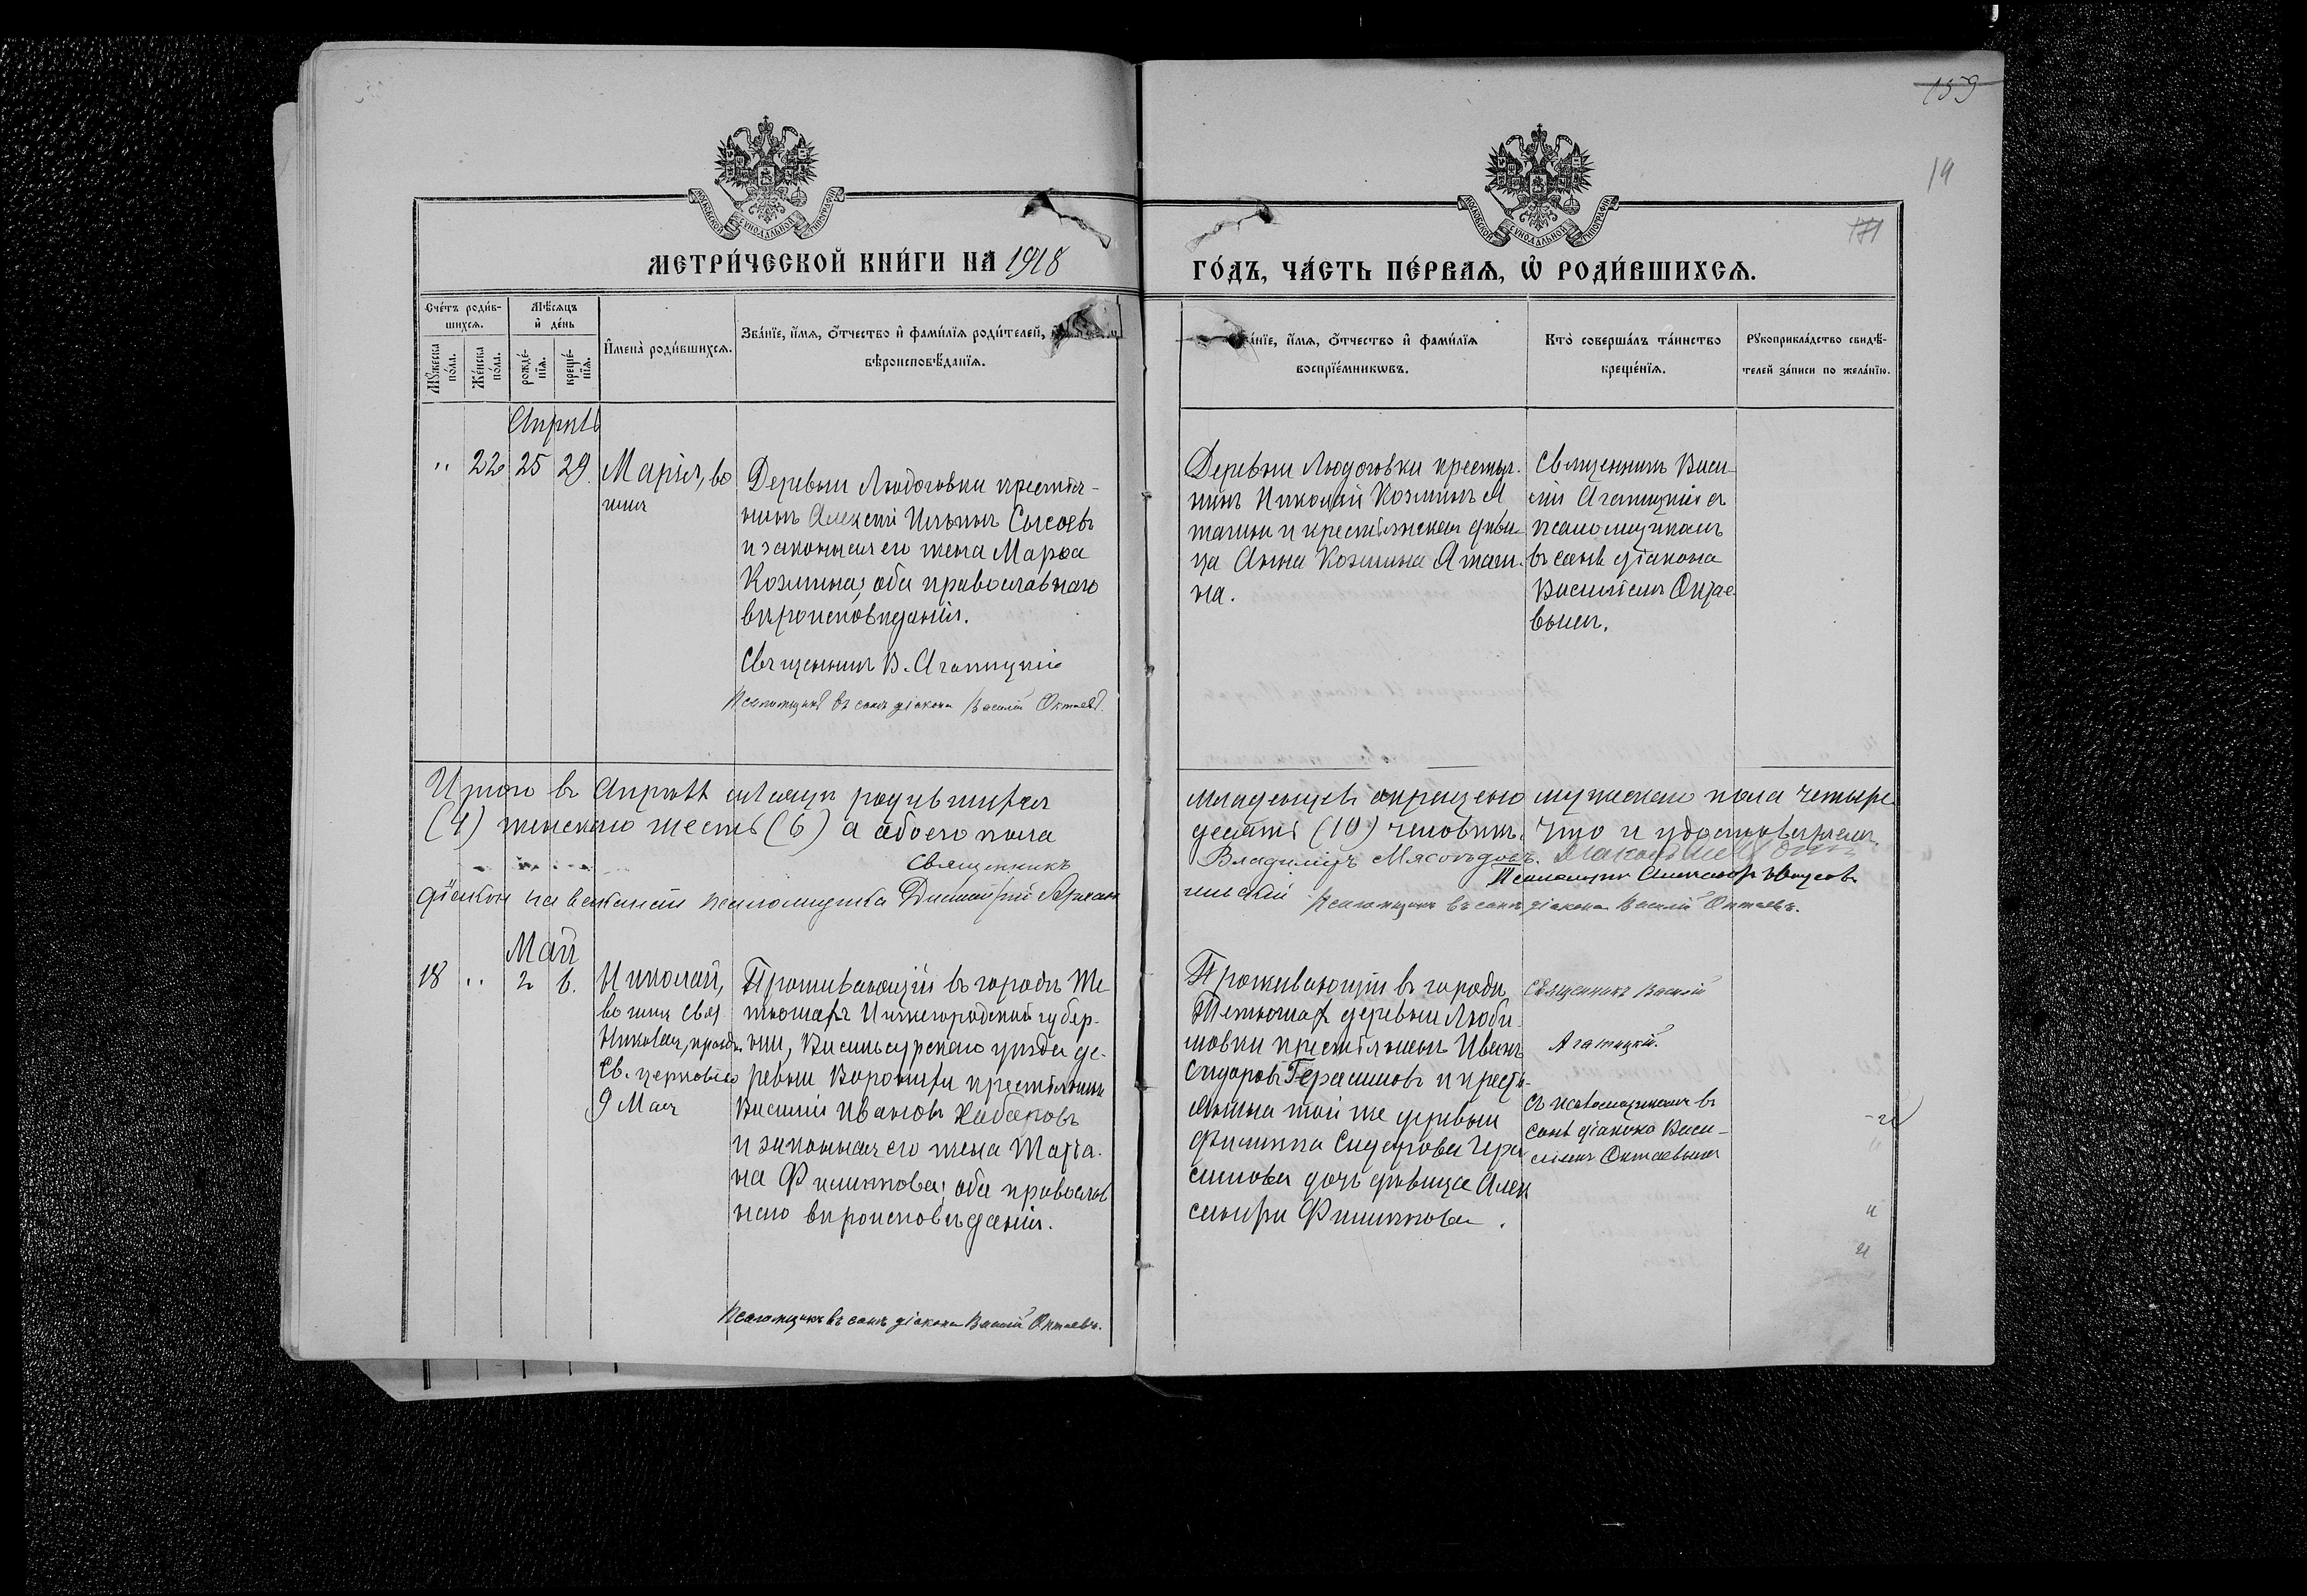 159
19
171
МОСКОВСКОЙ СУНОДАЛЬНОЙ ТИПОГРАФИИ
МОСКОВСКОЙ СУНОДАЛЬНОЙ ТИПОГРАФИИ
МЕТРИ́ЧЕСКОЙ КНИ́ГИ НА 1918
ГО́ДЪ, ЧА́СТЬ ПЕ́РВАѦ, Ѡ РОДИ́ВШИХСѦ.
Сче́тъ роди́в-
шихсѧ.
Мѣ́сѧцъ
и де́нь
Мꙋ́жеска
по́ла.
Же́нска
по́ла.
рожде́-
нїѧ.
креще́-
нїѧ.
Имена̀ роди́вшихсѧ.
Зва́нїе, и́мѧ, ѻ́тчество и фами́лїѧ роди́телей,
вѣроисповѣ́данїѧ.
и́мѧ, ѻ́тчество и фами́лїѧ
воспрїе́мникѡвъ.
Кто̀ соверша́лъ та́инство
креще́нїѧ.
Рꙋкоприкла́дство свидѣ́-
телей за́писи по жела́нїю.
Апрѣль
" 22 25 29. Марія, во
имя
Деревни Людоговки крестья-
нинъ Алексѣй Ильинъ Сысоевъ
и законная его жена Марѳа
Козмина, оба православнаго
вѣроисповѣданія.
Священникъ В. Агатицкій
Псаломщикъ въ санѣ діакона Василій Октаевъ.
Деревни Людоговки крестья-
нинъ Николай Козминъ А
и крестьянская дѣви-
ца Анна Козмина
на.
Священникъ Васи-
лій Агатицкій съ
псаломщикомъ
въ санѣ діакона
Василіемъ Октае-
вымъ.
Итого въ Апрѣлѣ мѣсяцѣ родившихся
младенцевъ окрещено мужескаго пола четыре
(4) женскаго шесть (6) а обоего пола
десять (10) человѣкъ. Что и удостовѣряемъ.
Священникъ
Владиміръ Мясоѣдовъ.
Псаломщикъ Александръ
діаконъ на вакансіи псаломщика Димитрій
Псаломщикъ въ санѣ діакона Василій Октаевъ.
Май
18 " 2 6. Николай,
во имя Свят
Николая, празд.
Св. церковію
9 Мая
Проживающій въ городѣ Те-
тюшахъ Нижегородской губер-
ніи, Васильсурскаго уѣзда де-
ревни крестьянинъ
Василій Ивановъ Хабаровъ
и законная его жена Татіа-
на Филиппова, оба православ
наго вѣроисповѣданія.
Псаломщикъ въ санѣ діакона Василій Октаевъ.
Проживающій въ городѣ
Тетюшахъ деревни Люби-
мовки крестьянинъ Иванъ
Сидоровъ Герасимовъ и кресть-
янина той же деревни
Филиппа Сидорова Гера-
симова дочь дѣвица Алек
сандра Филиппова.
Священникъ Василій
Агатицкій.
съ псаломщикомъ въ
санѣ діакона Васи-
ліемъ Октаевымъ